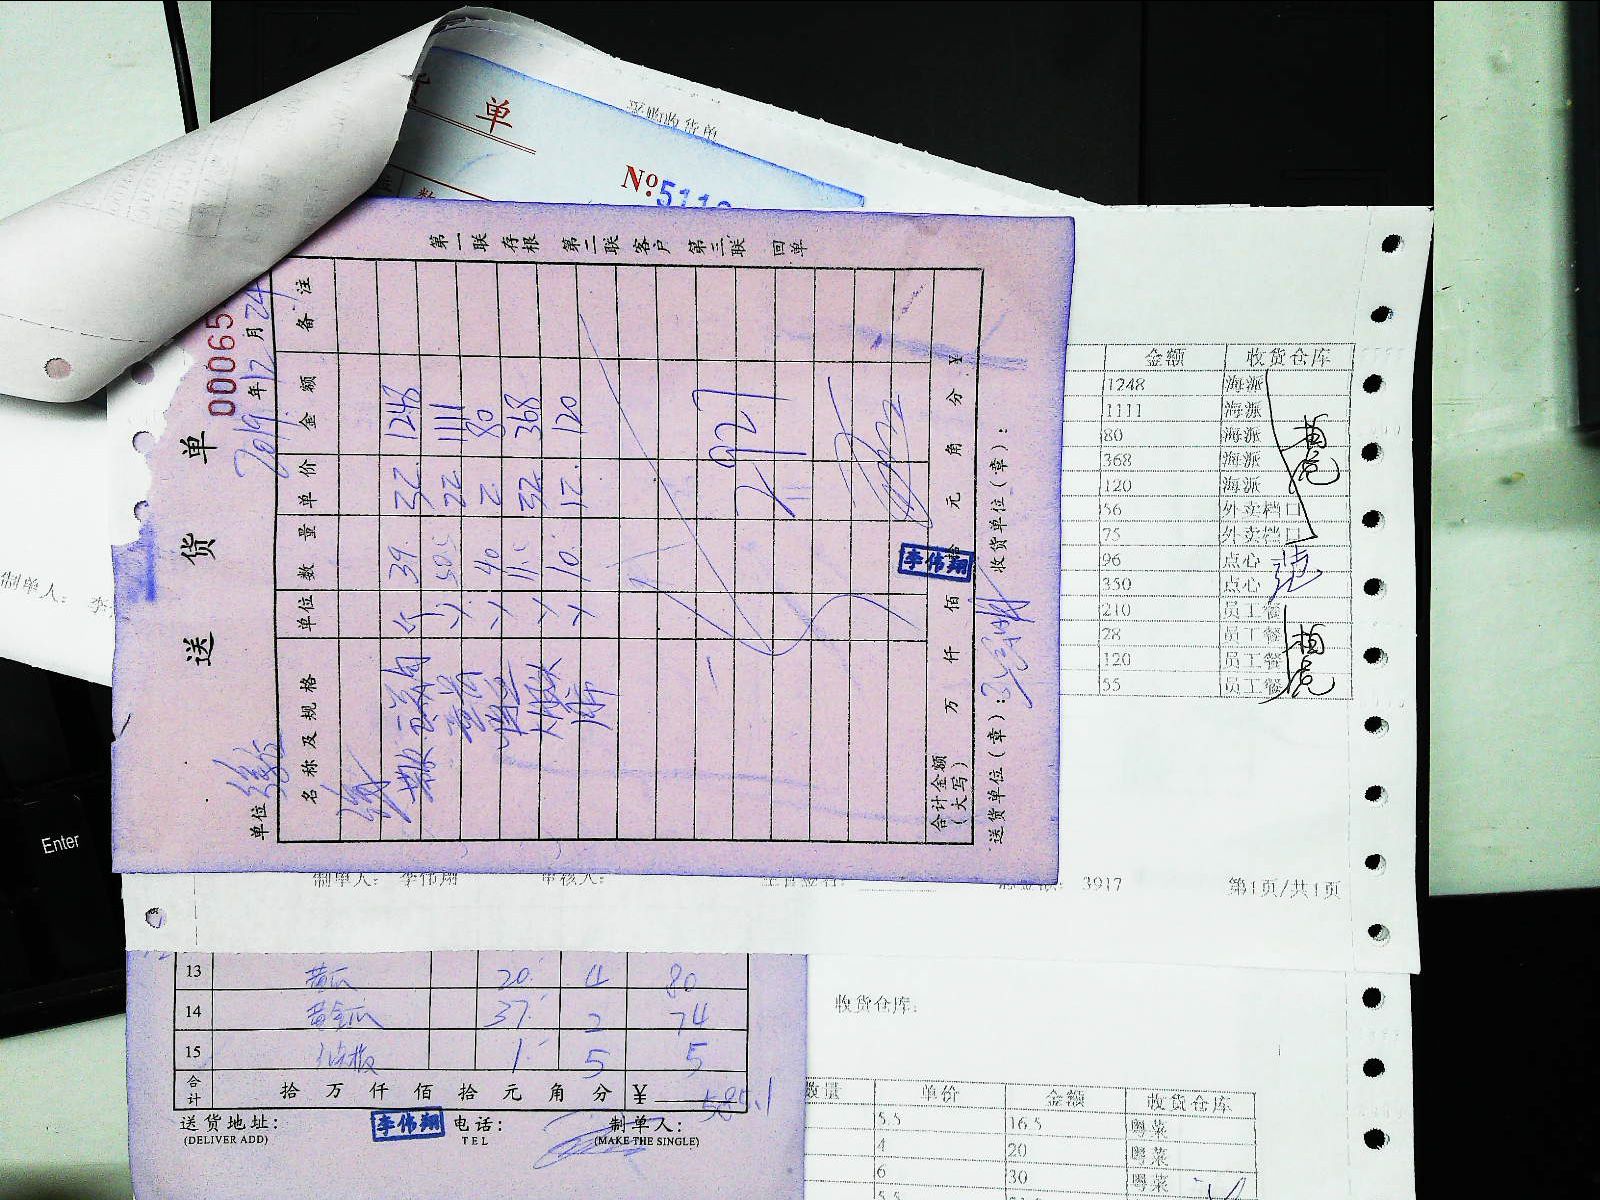 单
采购收货单
№5112
送货单
00065
2019年12月24
单位
名称及规格 单位 数量 单价 金额 备注
39. 32. 1248
22 1111
40 2. 80
11.5 32 368
10. 12. 120
2927
合计金额(大写) 万 仟 佰 拾 元 角 分 ¥
李伟翔
送货单位(章): 收货单位(章):
第一联 存根 第二联 客户 第三联 回单
金额 收货仓库
1248 海派
1111 海派
80 海派
368 海派
120 海派
56 外卖档口
75 外卖档口
96 点心
350 点心
210 员工餐
28 员工餐
120 员工餐
55 员工餐
制单人: 李
Enter
制单人: 李伟翔 审核人: 3917 第1页/共1页
13 黄瓜 20. 4 80
14 黄金瓜 37. 2 74
15 1. 5 5
合计 拾 万 仟 佰 拾 元 角 分 ¥ 585.1
送货地址: 李伟翔 电话: 制单人:
(DELIVER ADD) TEL (MAKE THE SINGLE)
收货仓库:
数量 单价 金额 收货仓库
5.5 16.5 粤菜
4 20 粤菜
6 30 粤菜
5.5